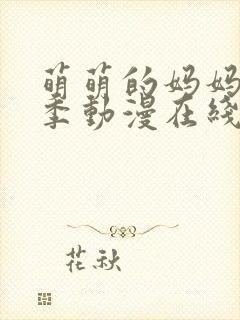 萌萌的妈妈
季動漫在綫
花秋